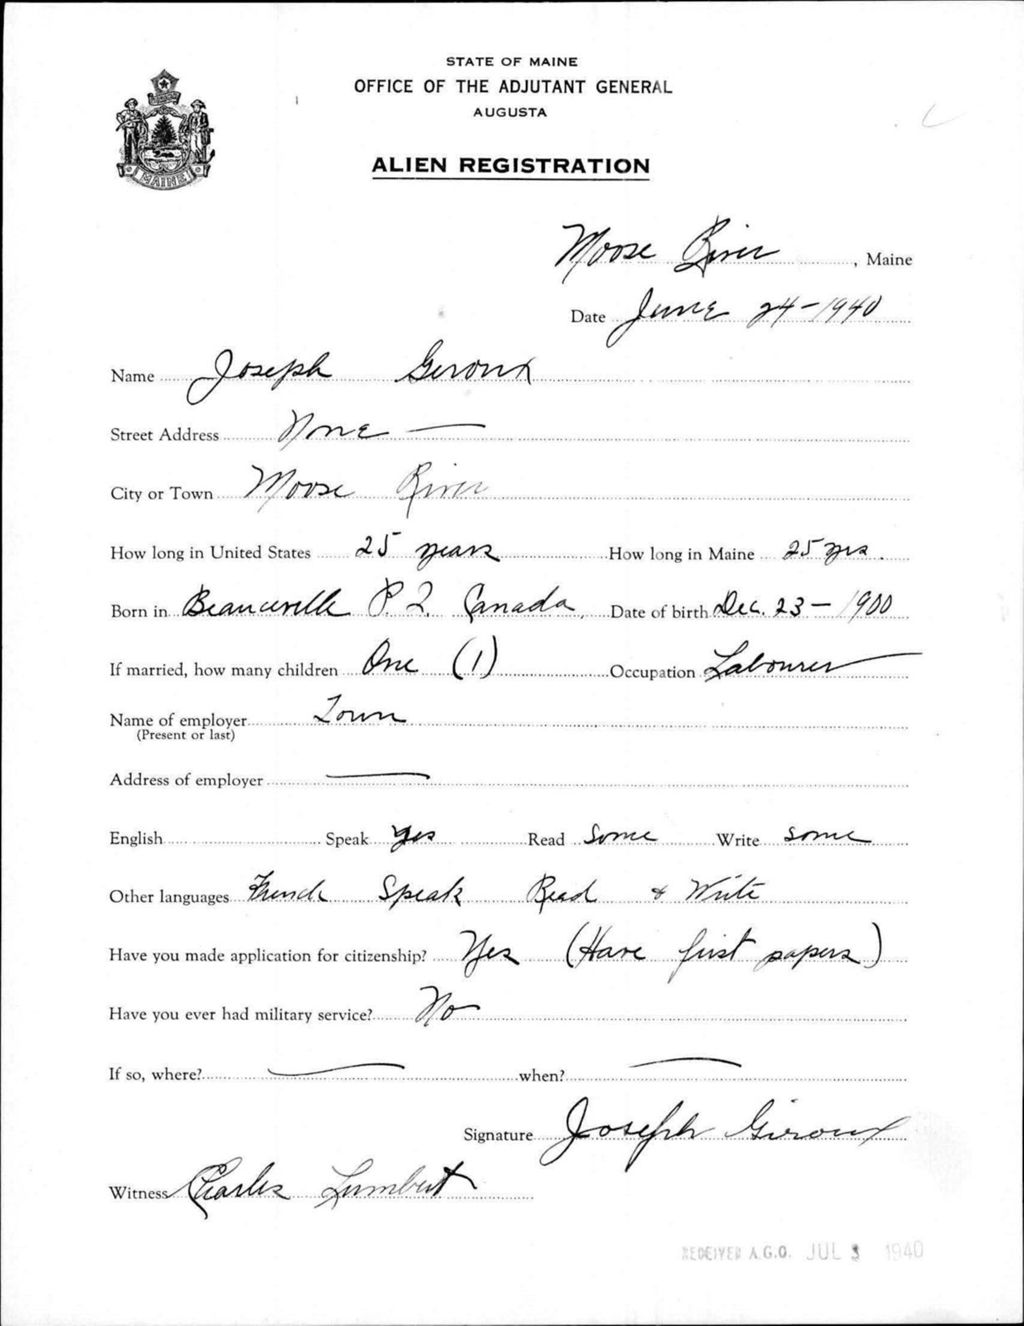 STATE OF MAINE
OFFICE OF THE ADJUTANT GENERAL
AUGUSTA
ALIEN REGISTRATION
MAINE
Moose River, Maine
Date June 24-1940
Name Joseph Giroux
Street Address None —
City or Town Moose River
How long in United States 25 years How long in Maine 25 yrs.
Born in Beauceville P.Q. Canada, Date of birth Dec. 23-1900
If married, how many children One (1) Occupation Labourer
Name of employer Town
(Present or last)
Address of employer —
English Speak Yes Read Some Write some
Other languages French Speak Read & Write
Have you made application for citizenship? Yes (Have first papers)
Have you ever had military service? No
If so, where? — when? —
Signature Joseph Giroux
Witness Charles Lumbert
RECEIVED A.G.O. JUL 3 1940